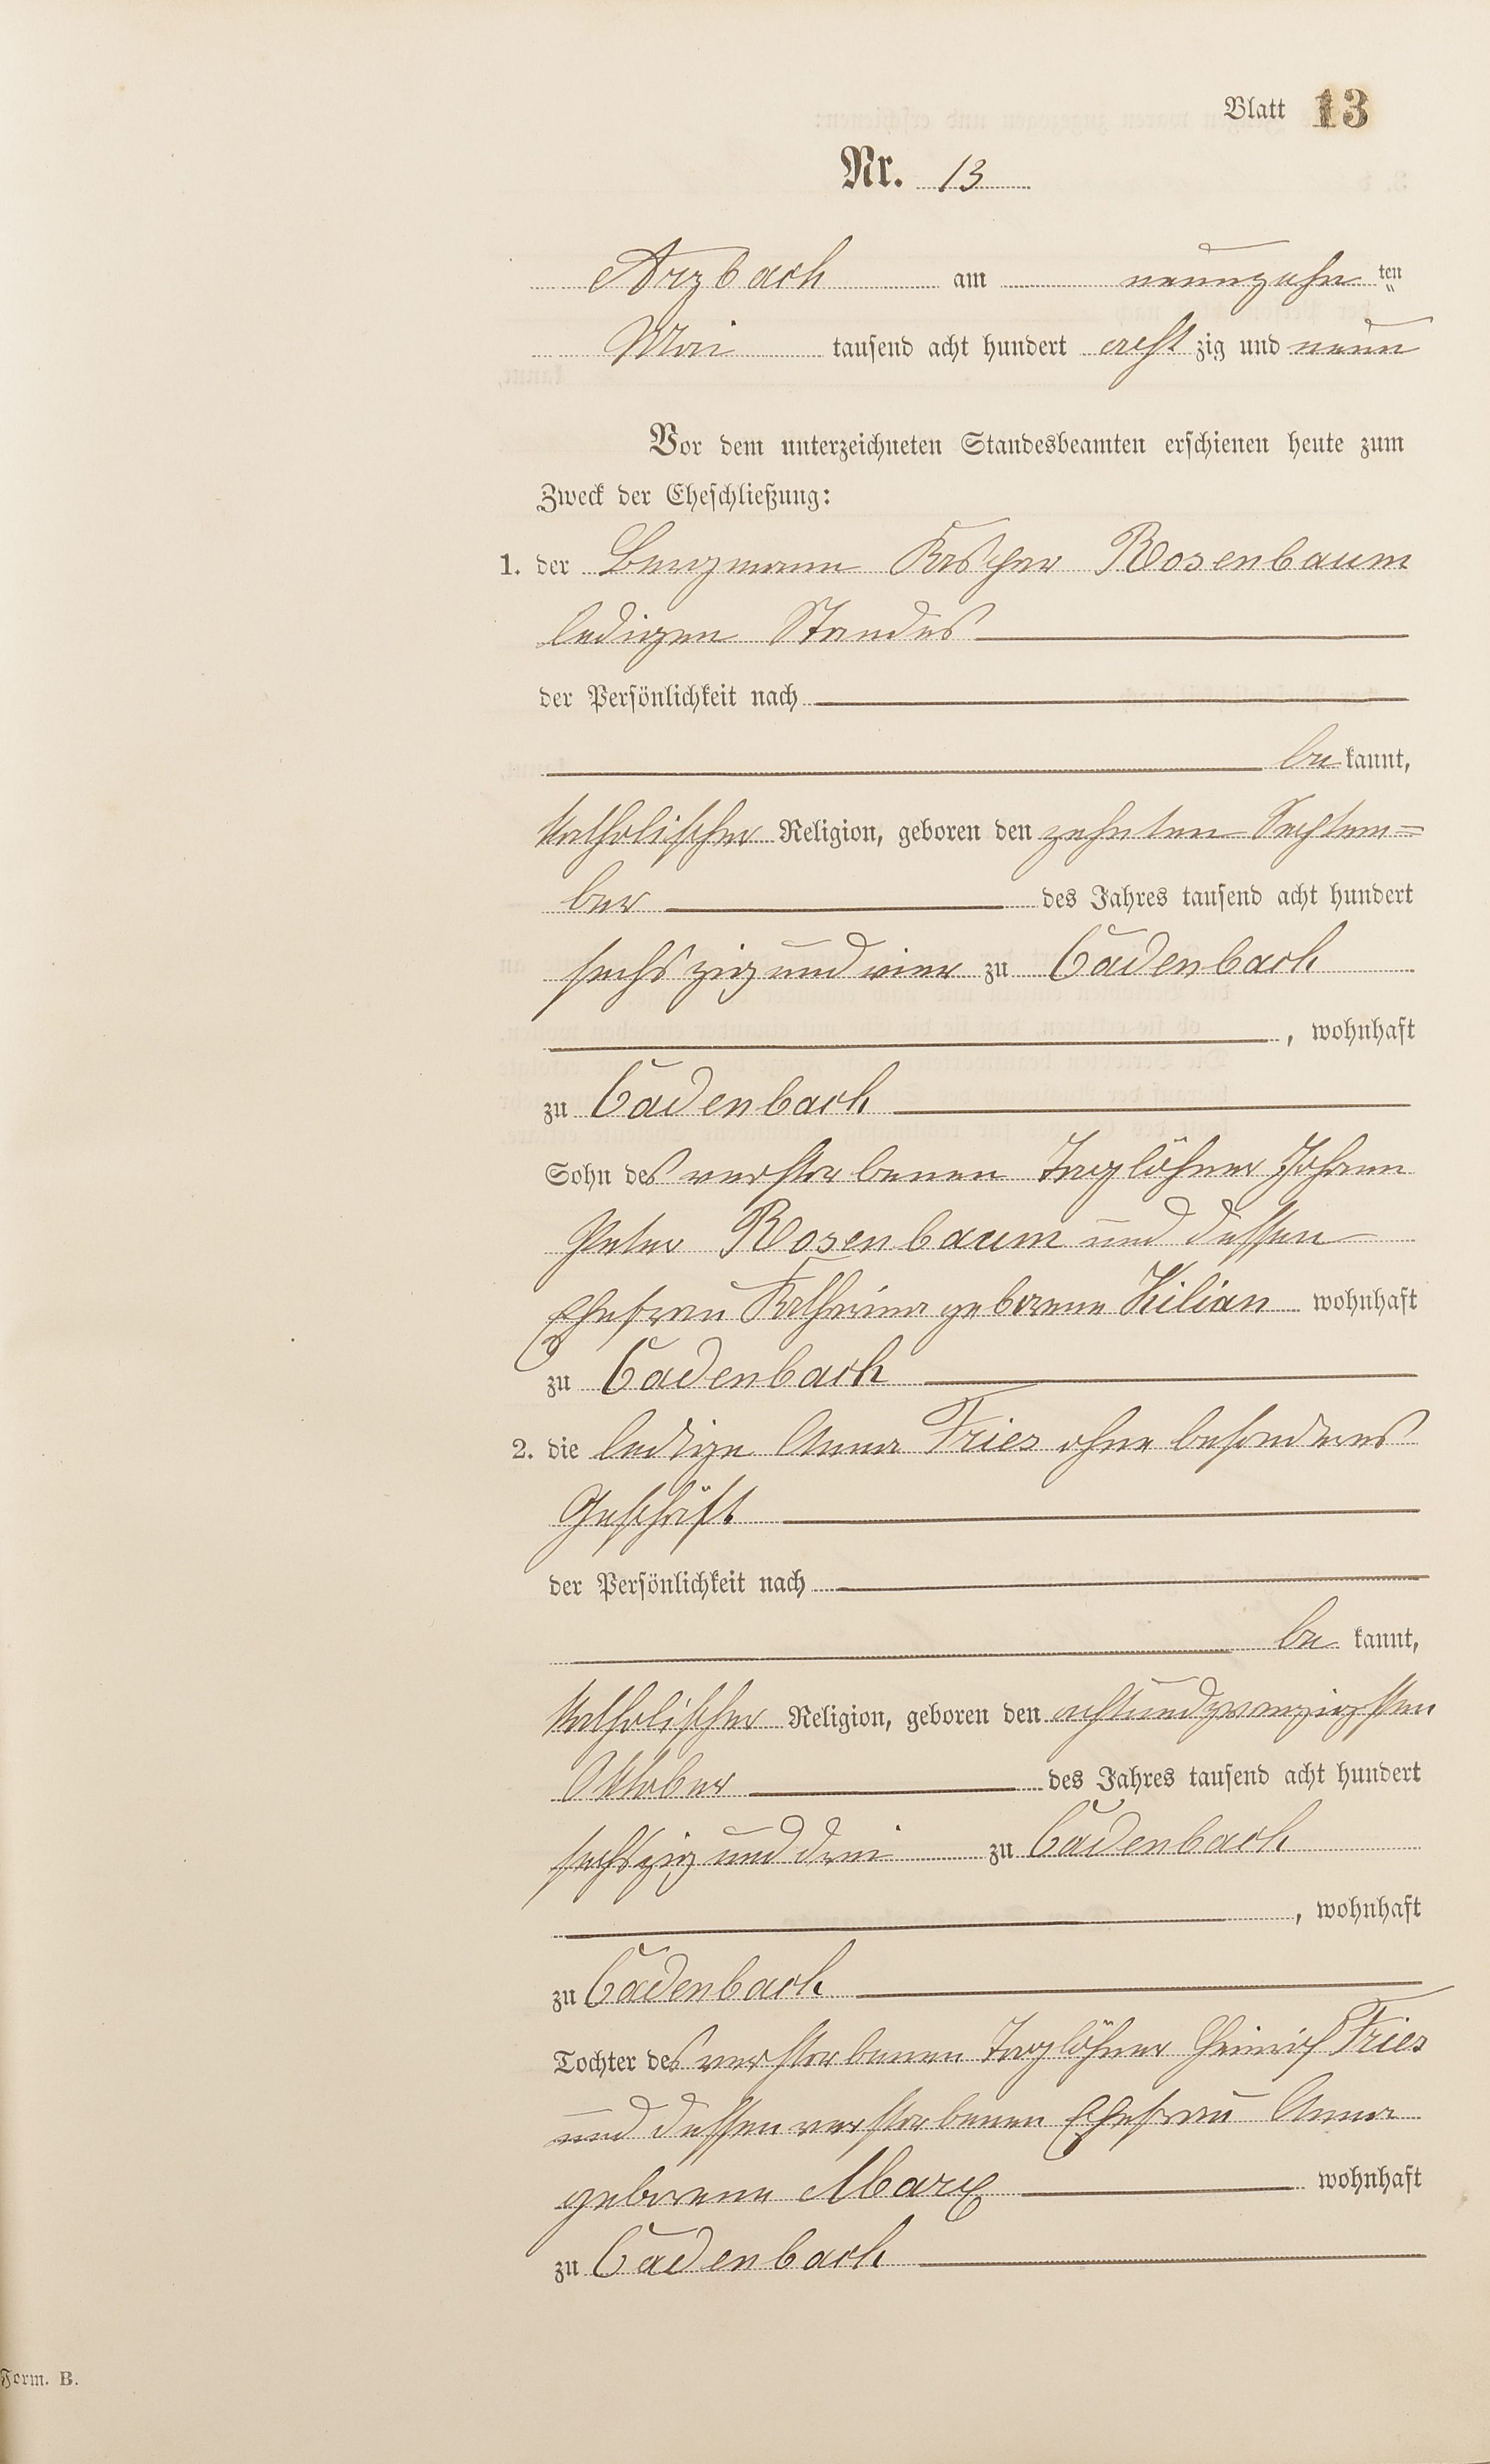 Blatt 13
Nr. 13
Arzbach am neunzehn ten
Mai tausend acht hundert acht zig und neun
Vor dem unterzeichneten Standesbeamten erschienen heute zum
Zweck der Eheschließung:
1. der Bergmann Kaspar Rosenbaum
ledigen Standes
der Persönlichkeit nach
be kannt,
katholischer Religion, geboren den zehnten Septem=
ber des Jahres tausend acht hundert
sechszig und vier zu Cadenbach
, wohnhaft
zu Cadenbach
Sohn des verstorbenen Taglöhner Johann
Peter Rosenbaum und dessen
Ehefrau Katharina geborene Kilian wohnhaft
zu Cadenbach
2. die ledige Anna Fries ohne besonderes
Geschäft
der Persönlichkeit nach
be kannt,
katholischer Religion, geboren den achtundzwanzigsten
Oktober des Jahres tausend acht hundert
sechszig und drei zu Cadenbach
, wohnhaft
zu Cadenbach
Tochter des verstorbenen Taglöhner Heinrich Fries
und dessen verstorbenen Ehefrau Anna
geborene Marx wohnhaft
zu Cadenbach
Form. B.